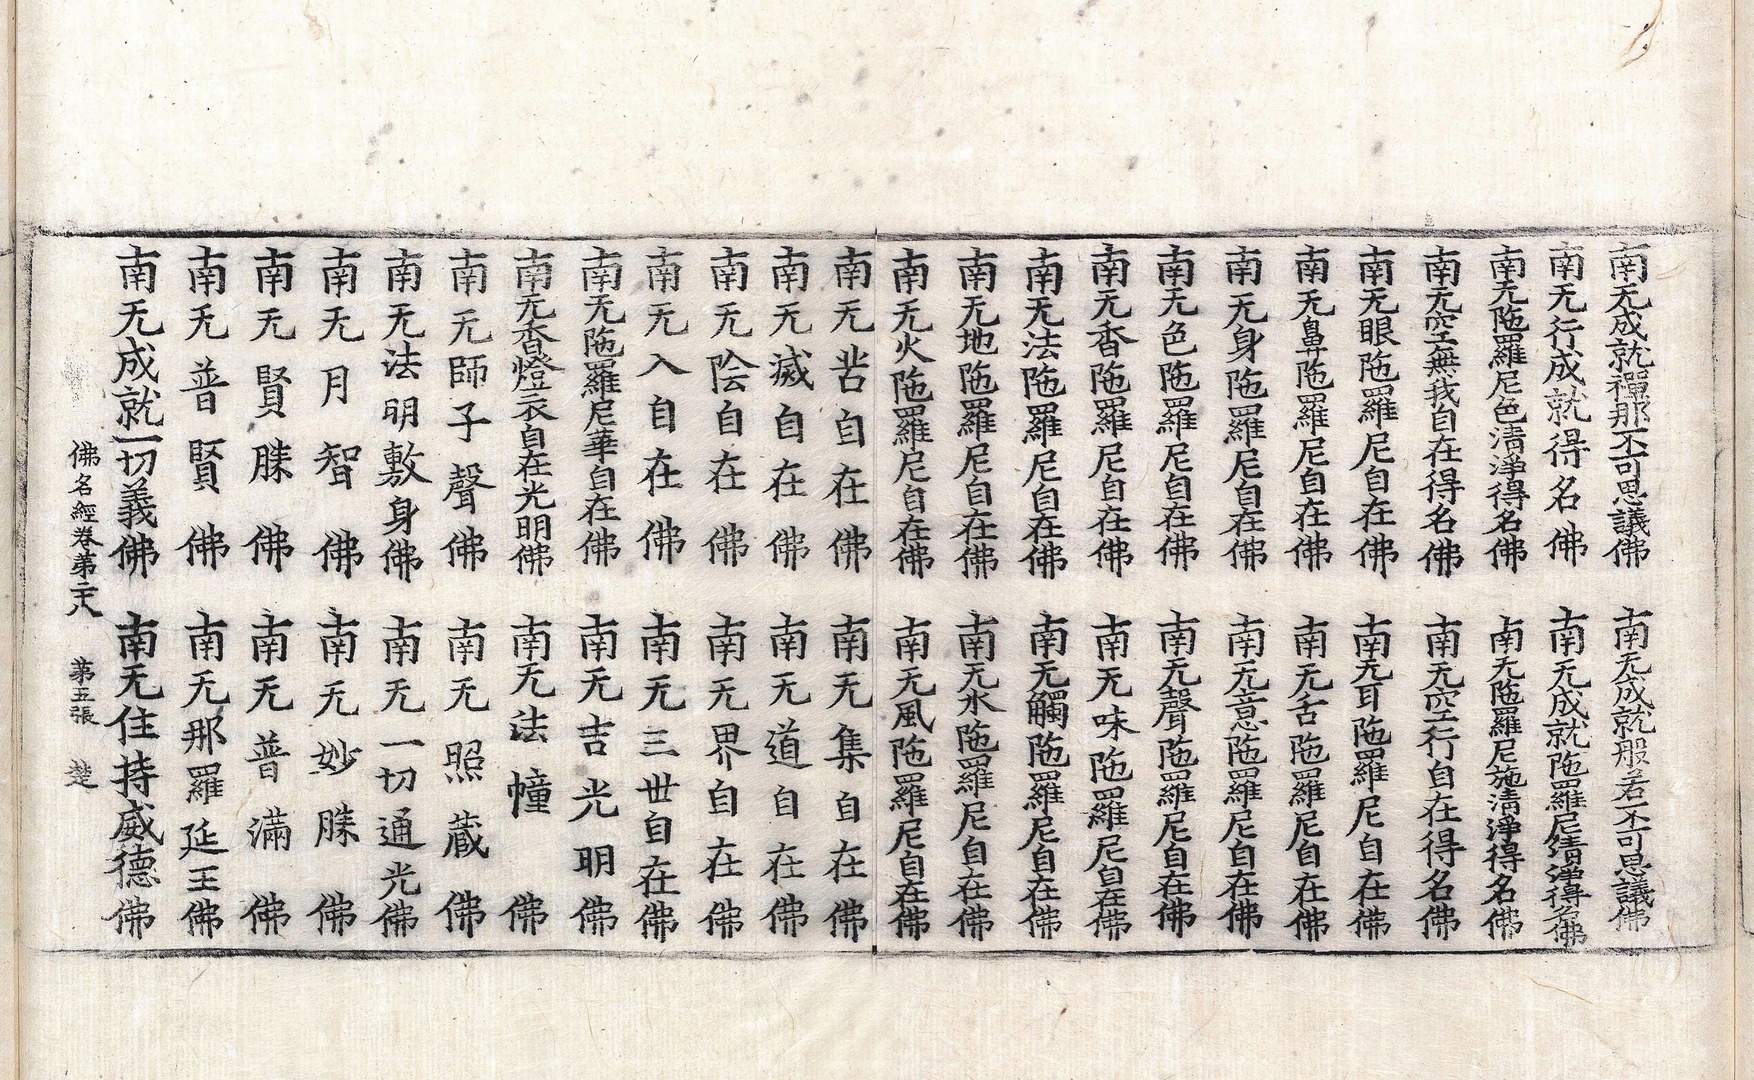 南无成就禪那不可思議佛　南无成就般若不可思議佛
南无行成就得名佛　南无成就陁羅尼清淨得名佛
南无陁羅尼色清淨得名佛　南无陁羅尼施清淨得名佛
南无空無我自在得名佛　南无空行自在得名佛
南无眼陁羅尼自在佛　南无耳陁羅尼自在佛
南无鼻陁羅尼自在佛　南无舌陁羅尼自在佛
南无身陁羅尼自在佛　南无意陁羅尼自在佛
南无色陁羅尼自在佛　南无聲陁羅尼自在佛
南无香陁羅尼自在佛　南无味陁羅尼自在佛
南无法陁羅尼自在佛　南无觸陁羅尼自在佛
南无地陁羅尼自在佛　南无水陁羅尼自在佛
南无火陁羅尼自在佛　南无風陁羅尼自在佛
南无苦自在佛　南无集自在佛
南无滅自在佛　南无道自在佛
南无陰自在佛　南无界自在佛
南无入自在佛　南无三世自在佛
南无陁羅尼華自在佛　南无吉光明佛
南无香燈衣自在光明佛　南无法幢佛
南无師子聲佛　南无照藏佛
南无法明敷身佛　南无一切通光佛
南无月智佛　南无妙勝佛
南无賢勝佛　南无普滿佛
南无普賢佛　南无那羅延王佛
南无成就一切義佛　南无住持威德佛
佛名經卷第二十八　第五張　楚